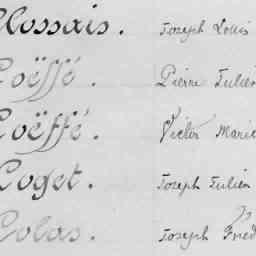 Clossais. Joseph Louis
Coëffé. Pierre Julien
Coëffé. Victor Marie
Coget. Joseph Julien
Colas. Joseph